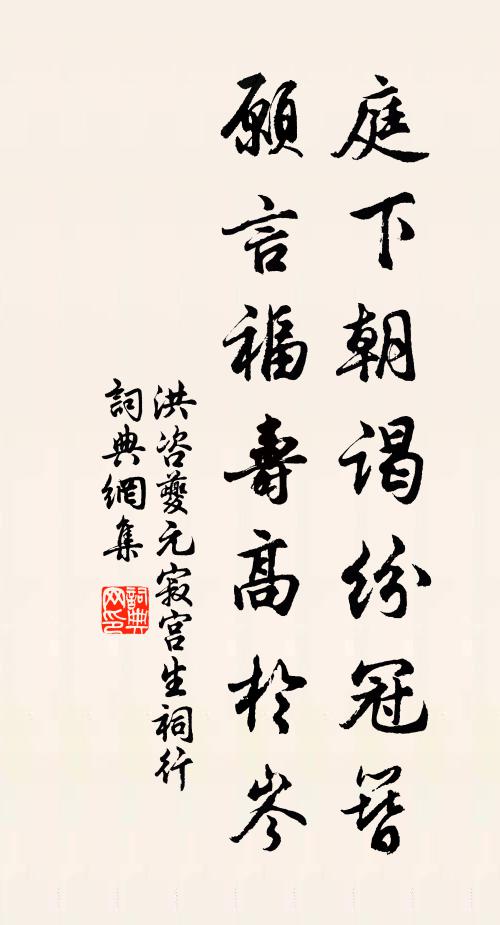 庭下朝謁紛冠簪
願言福壽高於岑
洪咨夔元寂宫生祠行
詞典網集
詞典
网印